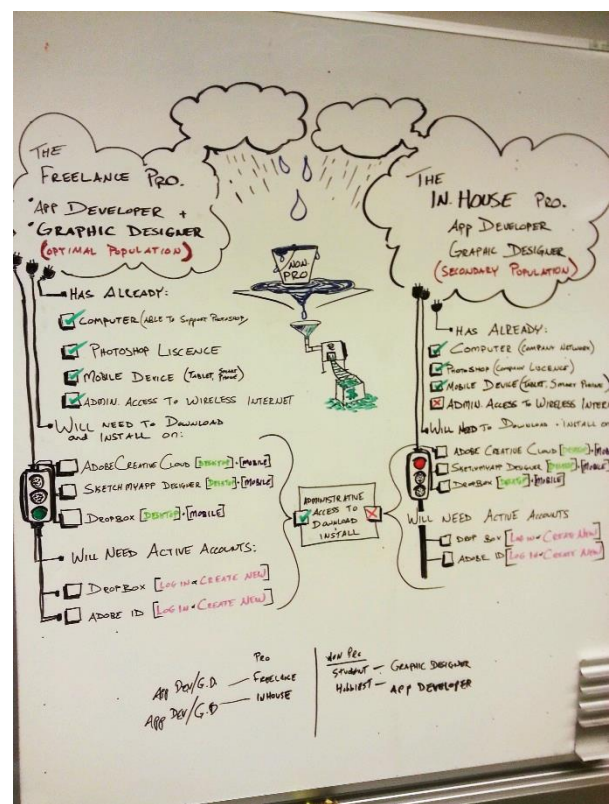 THE
FREELANCE PRO.
• APP DEVELOPER +
• GRAPHIC DESIGNER
(OPTIMAL POPULATION)
HAS ALREADY:
COMPUTER (ABLE TO SUPPORT PHOTOSHOP)
PHOTOSHOP LISCENCE
MOBILE DEVICE (TABLET, SMART PHONE)
ADMIN. ACCESS TO WIRELESS INTERNET
WILL NEED TO DOWNLOAD
and INSTALL ON:
ADOBE CREATIVE CLOUD [DESKTOP] + [MOBILE]
SKETCHMYAPP DESIGNER [DESKTOP] + [MOBILE]
DROPBOX [DESKTOP] + [MOBILE]
WILL NEED ACTIVE ACCOUNTS:
DROPBOX [LOG IN or CREATE NEW]
ADOBE ID [LOG IN or CREATE NEW]
NON
PRO
ADMINISTRATIVE
ACCESS TO
DOWNLOAD
INSTALL
THE
IN. HOUSE PRO.
APP DEVELOPER
GRAPHIC DESIGNER
(SECONDARY POPULATION)
HAS ALREADY:
COMPUTER (COMPANY NETWORK)
PHOTOSHOP (COMPANY LISCENCE)
MOBILE DEVICE (TABLET, SMART PHONE)
ADMIN. ACCESS TO WIRELESS INTER
WILL NEED TO DOWNLOAD + INSTALL ON
ADOBE CREATIVE CLOUD [DESKTOP] + [MOB
SKETCHMYAPP DESIGNER [DESKTOP] + [MOB
DROPBOX [DESKTOP] + [MOBILE]
WILL NEED ACTIVE ACCOUNTS
DROP BOX [LOG IN or CREATE NEW]
ADOBE ID [LOG IN or CREATE NEW]
PRO
APP DEV/G.D — FREELANCE
APP DEV/G.D — INHOUSE
NON PRO
STUDENT — GRAPHIC DESIGNER
— APP DEVELOPER